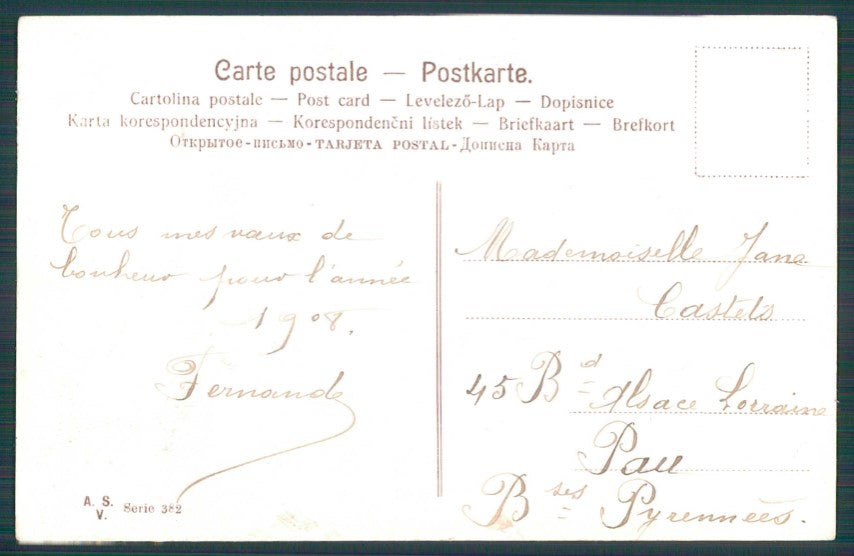 Carte postale — Postkarte.
Cartolina postale — Post card — Levelező-Lap — Dopisnice
Karta korespondencyjna — Korespondenčni listek — Briefkaart — Brefkort
Открытое-письмо-TARJETA POSTAL-Дописна Карта
Tous mes vœux de
bonheur pour l'année
1908.
Fernande
A. S.
V.
Serie 382
Mademoiselle Jane
Castets
45 Bd Alsace Lorraine
Pau
Bses Pyrennées.